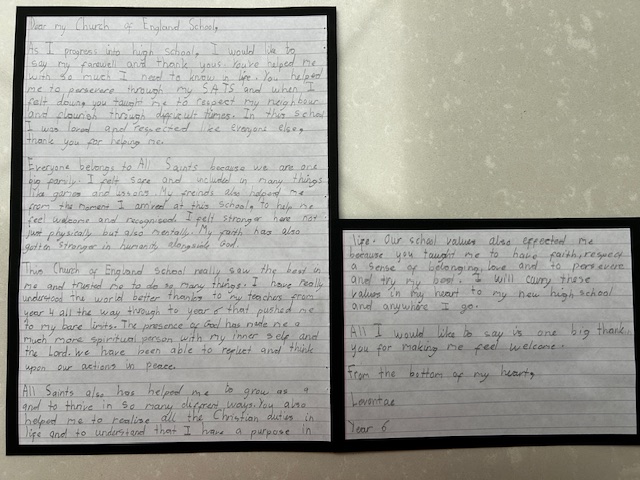 Dear my Church of England School,
As I progress into high school, I would like to
say my farewell and thank yous. You've helped me
with so much I need to know in life. You helped
me to persevere through my SATS and when I
felt down, you taught me to respect my neighbour
and flourish through difficult times. In this school
I was loved and respected like everyone else,
thank you for helping me.
Everyone belongs to All Saints because we are one
big family. I felt safe and included in many things
like games and lessons. My freinds also helped me
from the moment I arrived at this school, to help me
feel welcome and recognised. I felt stronger here not
just physically but also mentally. My faith has also
gotten stronger in humanity alongside God.
This Church of England School really saw the best in
me and trusted me to do so many things. I have really
understood the world better thanks to my teachers from
year 4 all the way through to year 6 that pushed me
to my bare limits. The presence of God has made me a
much more spiritual person with my inner self and
the Lord. We have been able to reflect and think
upon our actions in peace.
All Saints also has helped me to grow as a
and to thrive in so many different ways. You also
helped me to realise all the Christian duties in
life and to understand that I have a purpose in
life. Our school values also effected me
because you taught me to have faith, respect
a sense of belonging, love and to persevere
and try my best. I will carry these
values in my heart to my new high school
and anywhere I go.
All I would like to say is one big thank
you for making me feel welcome.
From the bottom of my heart,
Leventae
Year 6